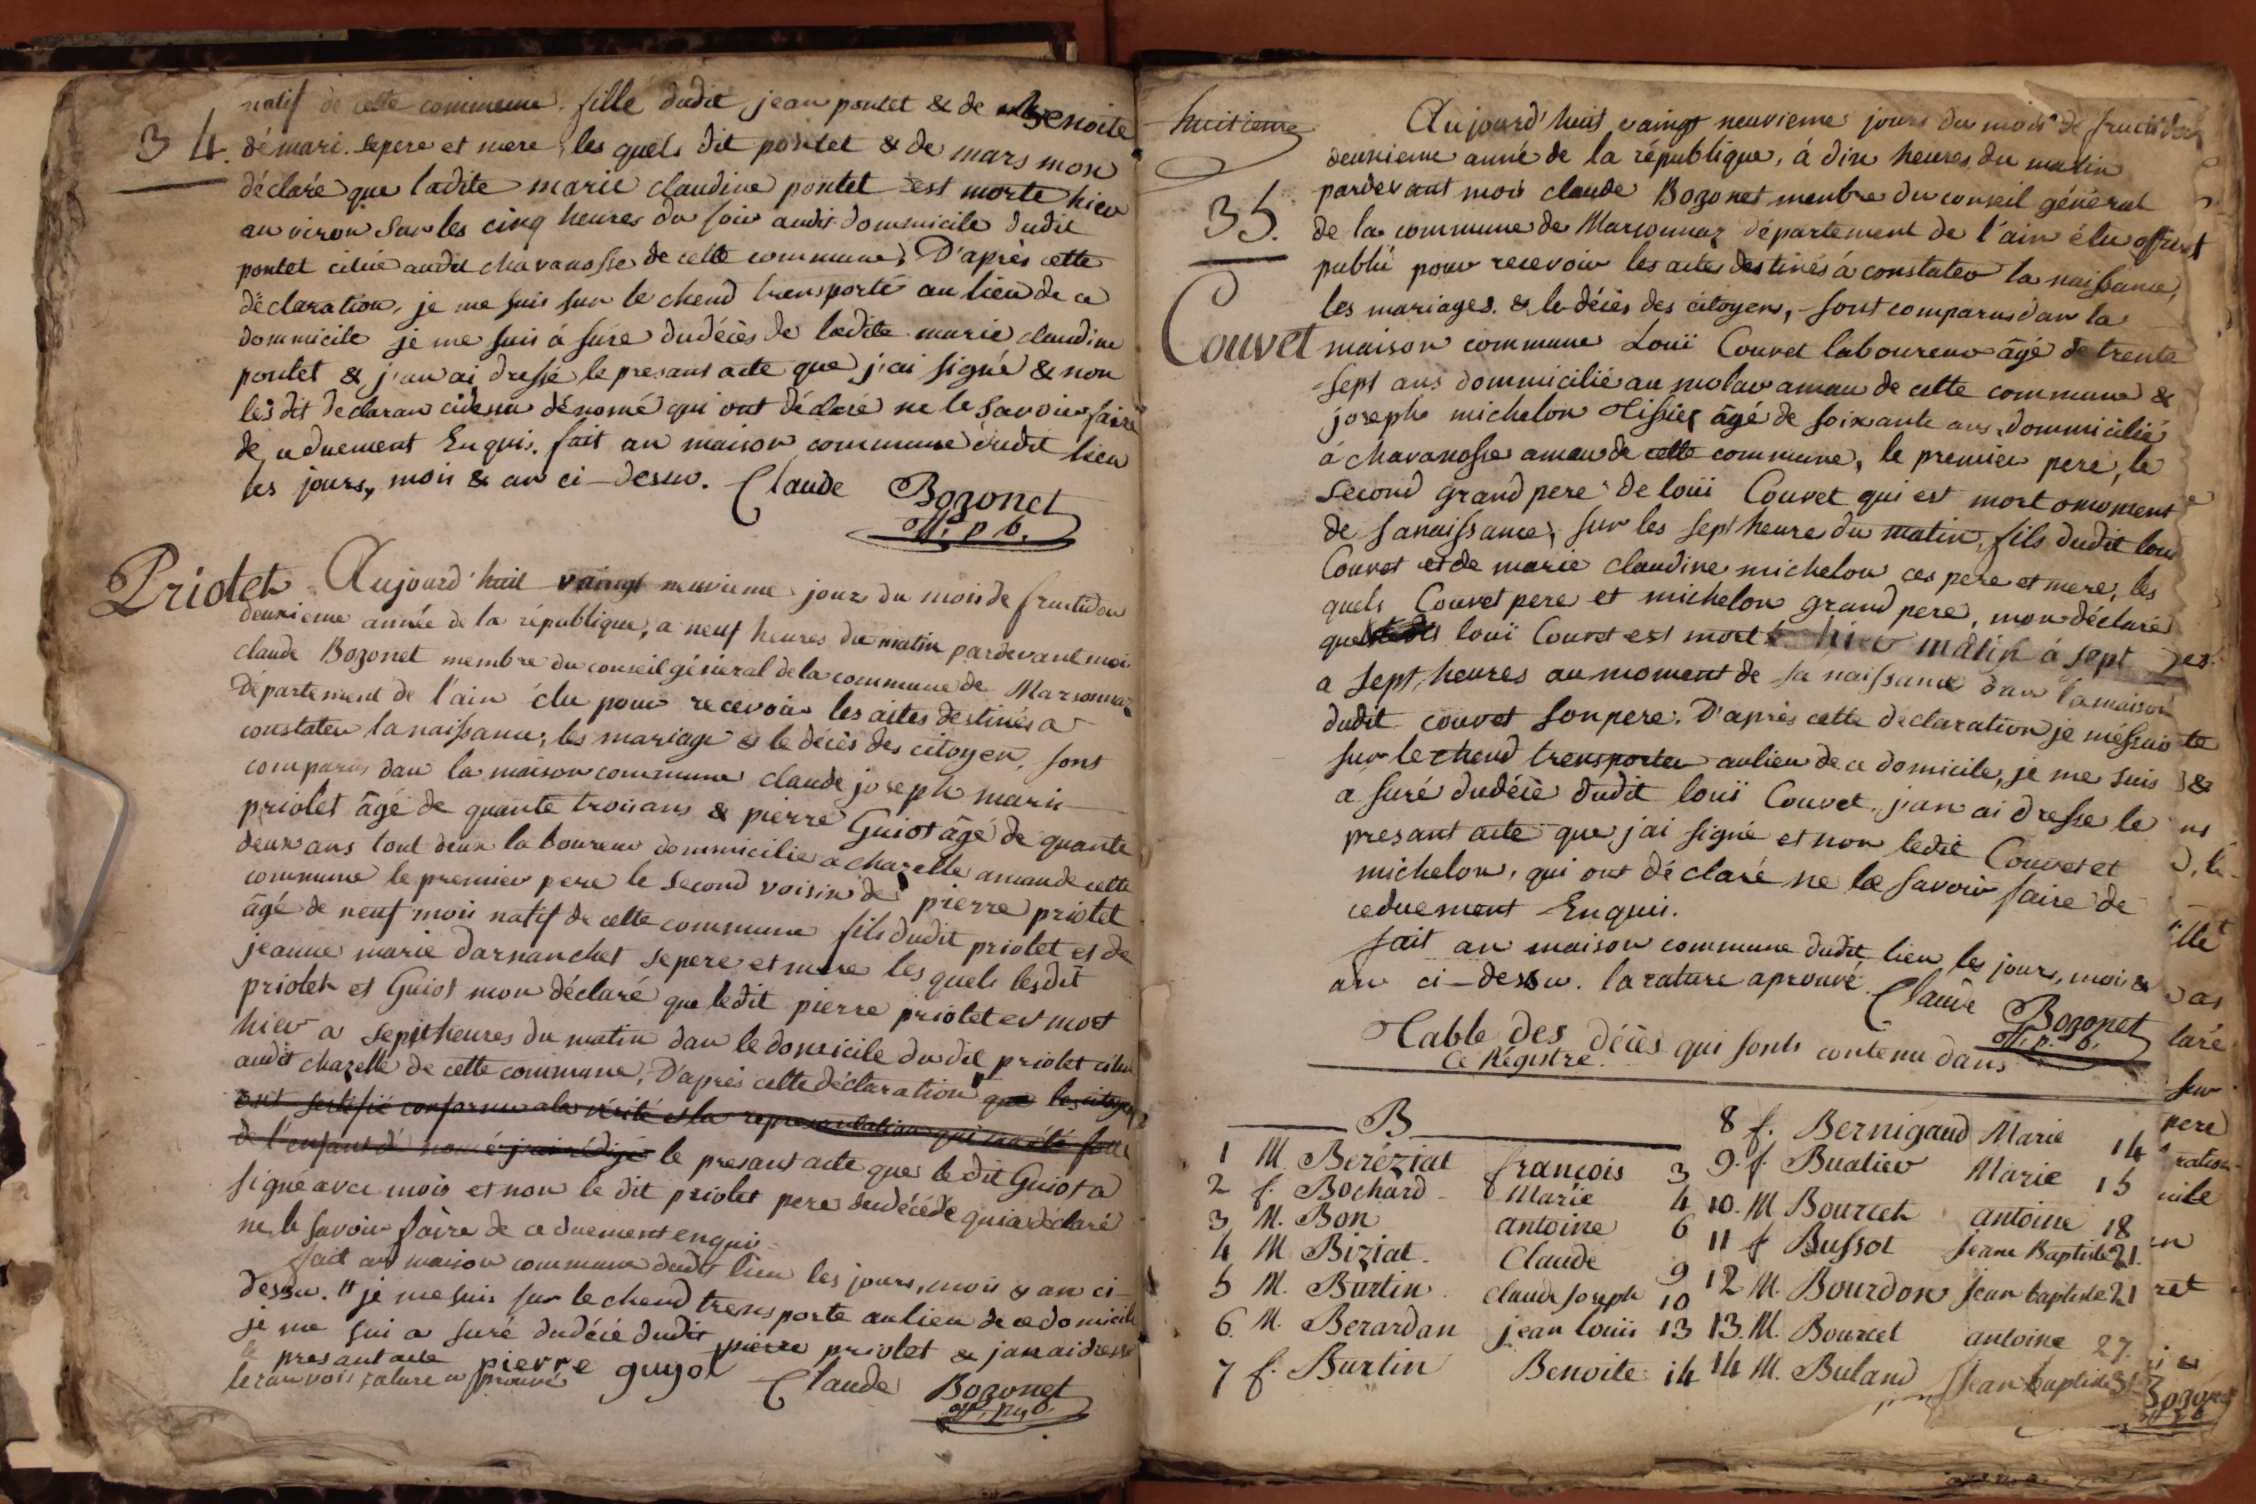 natif de cette commune fille dudit jean pontet & de Benoite
34. démari. sepere et mere, les quels dit pontet & de mars mon
déclaré que ladite marie claudine pontet est morte hier
anviron sur les cinq heures du soir audit dommicile dudit
pontet citué audit chavanosse de cette commune, D'après cette
déclaration, je me suis sur le chend trensporté au lieu de ce
dommicile je me suis á suré dudécès de ladite marie claudine
pontet & j'an ai dressé le presant acte que j'ai signé & non
les dit declaran cidesu dénomé qui ont déclaré ne le savoir faire
de ceduement Enquis. fait an maison commune dudit lieu
les jours, mois & an ci-desu. Claude Bozonet
off. p b.
Priolet Aujourd'huit vaingt neuvieme jour du mois de fructidor
deuxieme année de la république, a neuf heures du matin pardevant moi
claude Bozonet membre du conseil général de la commune de Marsonnaz
département de l'ain élu pour recevoir les actes destinés a
constater la naissance, les mariage & le décès des citoyen, sont
comparus dan la maison commune claude joseph marie
priolet âgé de quante troisans & pierre Guiot âgé de quante
deux ans tout deux laboureur dommicilie a chazelle amaude cette
commune le premier pere le second voisin de pierre priolet
âgé de neuf mois natif de cette commune fils dudit priolet et de
jeanne marie darnanchet sepere et mere les quels lesdit
priolet et Guiot mon déclaré que ledit pierre priolet est mort
hier a sept heures du matin dan le domicile du dit priolet citué
audit chazelle de cette commune, D'après cette déclaration que les citoyen
ont sertifié conforme a la vérité et la representation qui m'a été faite
de l'enfant dénomé j'ai rédigé le presant acte que le dit Guiot a
signé avec mois et non le dit priolet pere dudécédé qui a déclaré
ne le savoir faire de ceduement enqui
fait an maison commune dudit lieu les jours, mois & an ci-
dessu. " je me suis sur le chend trensporte aulieu de ce domicile
je me sui a suré dudécié dudit pierre priolet & jan ai dressé
le presant acte pierre guyot
le ranvois rature aprouvé Claude Bozonet
off. pub.
huitieme Aujourd'huit vaingt neuvieme jours du mois de fructidor
deuxieme anné de la république, á dix heures du matin
pardevant mois claude Bozonet menbre du conseil général
35. de la commune de Marsonnaz département de l'ain élu officiet
publié pour recevoir les actes destinés á constater la naissance,
les mariages & le décès des citoyens, sont comparus dan la
Couvet maison commune Louï Couvet laboureur âgé de trente
sept ans dommicilié au molar amau de cette commune &
joseph michelon Tissier âgé de soixante ans dommicilié
á chavanosse amau de cette commune, le premier pere, le
second grand pere de louï Couvet qui est mort omoment
de sanaissance, sur les sept heure du matin, fils dudit louï
Couvet et de marie claudine michelon ces pere et mere, les
quels Couvet pere et michelon grand pere, mon déclaré
que louï Couvet est mort hier matin á sept
a sept heures au moment de sa naissance dan la maison
dudit couvet son pere. D'après cette déclaration je mésuis
sur le chend trensporter aulieu de ce domicile, je me suis
a suré dudécè dudit louï Couvet. j'an ai dresse le
presant acte que j'ai signé et non ledit Couvet et
michelon, qui ont déclaré ne le savoir faire de
ceduement Enquis.
fait an maison commune dudit lieu les jours, mois &
an ci-dessu. la rature aprouvé Claude Bozonet
off. p. b.
Table des décès qui sonts contenu dans
Ce Régistre.
B
1 M. Beréziat françois 3
2 f. Bochard Marie 4
3 M. Bon antoine 6
4 M Biziat Claude 9
5 M. Burtin Claude Joseph 10
6. M. Berardan jean louïs 13
7 f. Burtin Benoite 14
8 f. Bernigaud Marie 14
9. f. Bualier Marie 15
10. M Bourcet antoine 18
11 f Bussot Jeane Baptiste 21.
12 M. Bourdon Jean baptiste 21
13. M. Bourcet antoine 27.
14 M. Buland Jean baptiste
te
&
ns
pere
ret
Bozonet